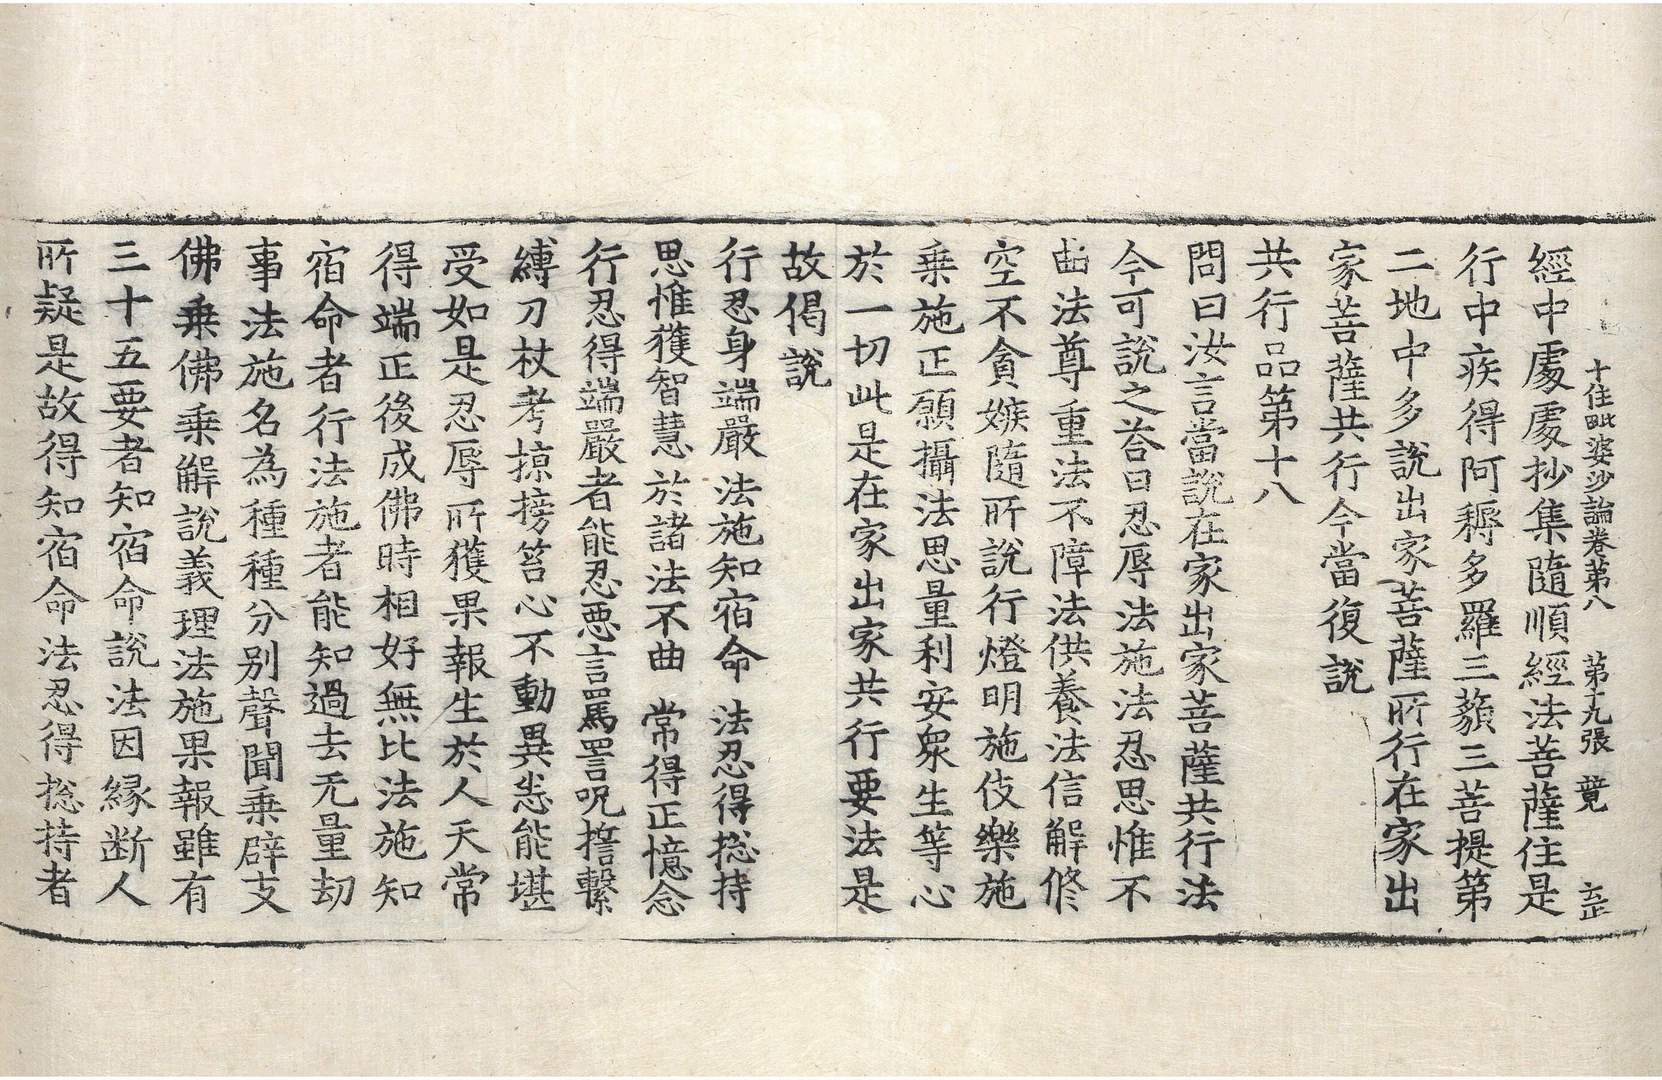 十住毗婆沙論卷第八　第十九張　竟
經中處處抄集隨順經法菩薩住是
行中疾得阿耨多羅三藐三菩提第
二地中多說出家菩薩所行在家出
家菩薩共行今當復說
共行品第十八
問曰汝言當說在家出家菩薩共行法
今可說之荅曰忍辱法施法忍思惟不
曲法尊重法不障法供養法信解修
空不貪嫉隨所說行燈明施伎樂施
乗施正願攝法思量利安衆生等心
於一切此是在家出家共行要法是
故偈說
行忍身端嚴　法施知宿命　法忍得捴持
思惟獲智慧　於諸法不曲　常得正憶念
行忍得端嚴者能忍惡言罵詈呪擔繫
縛刀杖考掠搒笞心不動異恙能堪
受如是忍辱所獲果報生於人天常
得端正後成佛時相好無比法施知
宿命者行法施者能知過去无量劫
事法施名為種種分別聲聞乗辟支
佛乗佛乗解說義理法施果報雖有
三十五要者知宿命說法因緣断人
所疑是故得知宿命法忍得捴持者